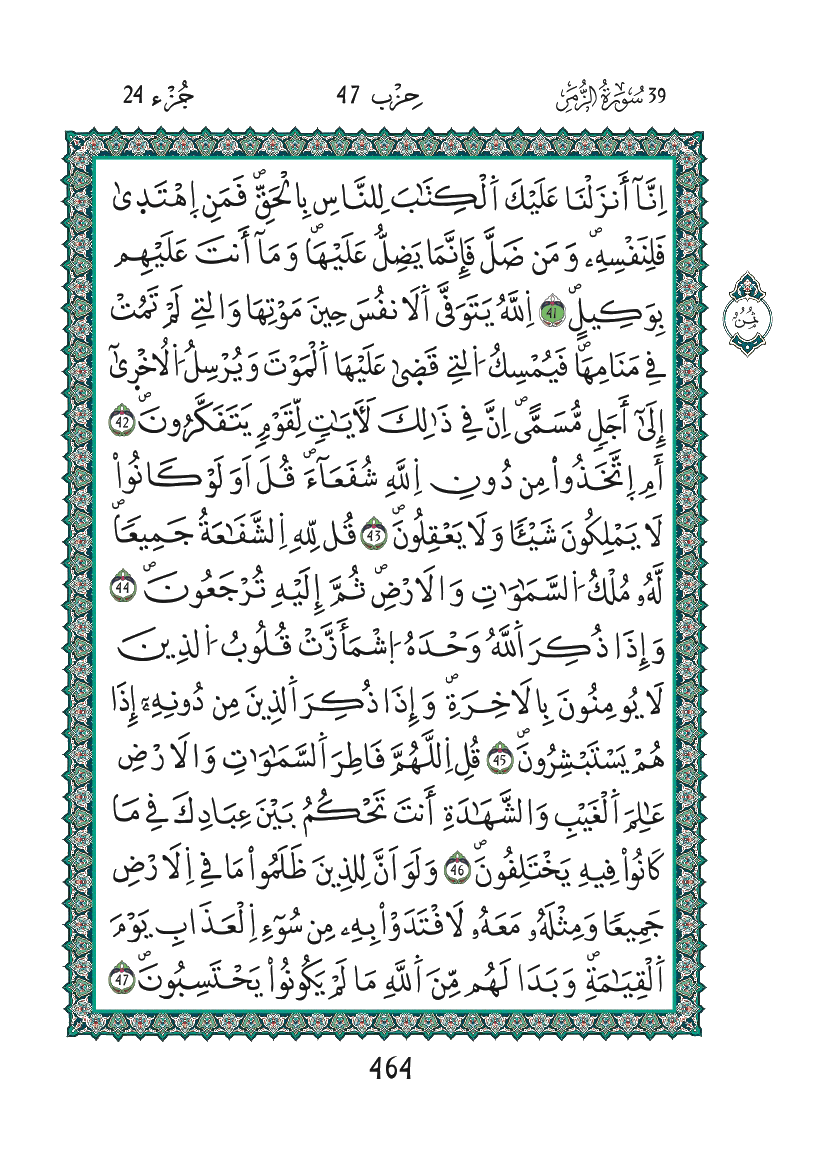 39 سُورَةُ الزُّمَرِ
حِزْب 47
جُزْء 24
اِنَّآ أَنزَلْنَا عَلَيْكَ اَ۬لْكِتَٰبَ لِلنَّاسِ بِالْحَقِّۖ فَمَنِ اِ۪هْتَد۪يٰ
فَلِنَفْسِهِۦۖ وَمَن ضَلَّ فَإِنَّمَا يَضِلُّ عَلَيْهَاۖ وَمَآ أَنتَ عَلَيْهِم
بِوَكِيلٍۖ 41 اِ۬للَّهُ يَتَوَفَّي اَ۬لَانفُسَ حِينَ مَوْتِهَا وَالتِے لَمْ تَمُتْ
فِے مَنَامِهَاۖ فَيُمْسِكُ اُ۬لتِے قَض۪يٰ عَلَيْهَا اَ۬لْمَوْتَ وَيُرْسِلُ اُ۬لُاخْر۪يٰٓ
إِلَيٰٓ أَجَلٖ مُّسَمّيًۖ اِنَّ فِے ذَٰلِكَ لَأٓيَٰتٖ لِّقَوْمٖ يَتَفَكَّرُونَۖ 42
أَمِ اِ۪تَّخَذُواْ مِن دُونِ اِ۬للَّهِ شُفَعَآءَۖ قُلَ اَوَلَوْ كَانُواْ
لَا يَمْلِكُونَ شَيْـٔاٗ وَلَا يَعْقِلُونَۖ 43 قُل لِّلهِ اِ۬لشَّفَٰعَةُ جَمِيعاٗۖ
لَّهُۥ مُلْكُ اُ۬لسَّمَٰوَٰتِ وَالَارْضِۖ ثُمَّ إِلَيْهِ تُرْجَعُونَۖ 44
وَإِذَا ذُكِرَ اَ۬للَّهُ وَحْدَهُ اُ۪شْمَأَزَّتْ قُلُوبُ اُ۬لذِينَ
لَا يُومِنُونَ بِالَاخِرَةِۖ وَإِذَا ذُكِرَ اَ۬لذِينَ مِن دُونِهِۦٓ إِذَا
هُمْ يَسْتَبْشِرُونَۖ 45 قُلِ اِ۬للَّهُمَّ فَاطِرَ اَ۬لسَّمَٰوَٰتِ وَالَارْضِ
عَٰلِمَ اَ۬لْغَيْبِ وَالشَّهَٰدَةِ أَنتَ تَحْكُمُ بَيْنَ عِبَادِكَ فِے مَا
كَانُواْ فِيهِ يَخْتَلِفُونَۖ 46 وَلَوَ اَنَّ لِلذِينَ ظَلَمُواْ مَا فِے اِ۬لَارْضِ
جَمِيعاٗ وَمِثْلَهُۥ مَعَهُۥ لَافْتَدَوْاْ بِهِۦ مِن سُوٓءِ اِ۬لْعَذَابِ يَوْمَ
اَ۬لْقِيَٰمَةِۖ وَبَدَا لَهُم مِّنَ اَ۬للَّهِ مَا لَمْ يَكُونُواْ يَحْتَسِبُونَۖ 47
ثُمُن
464